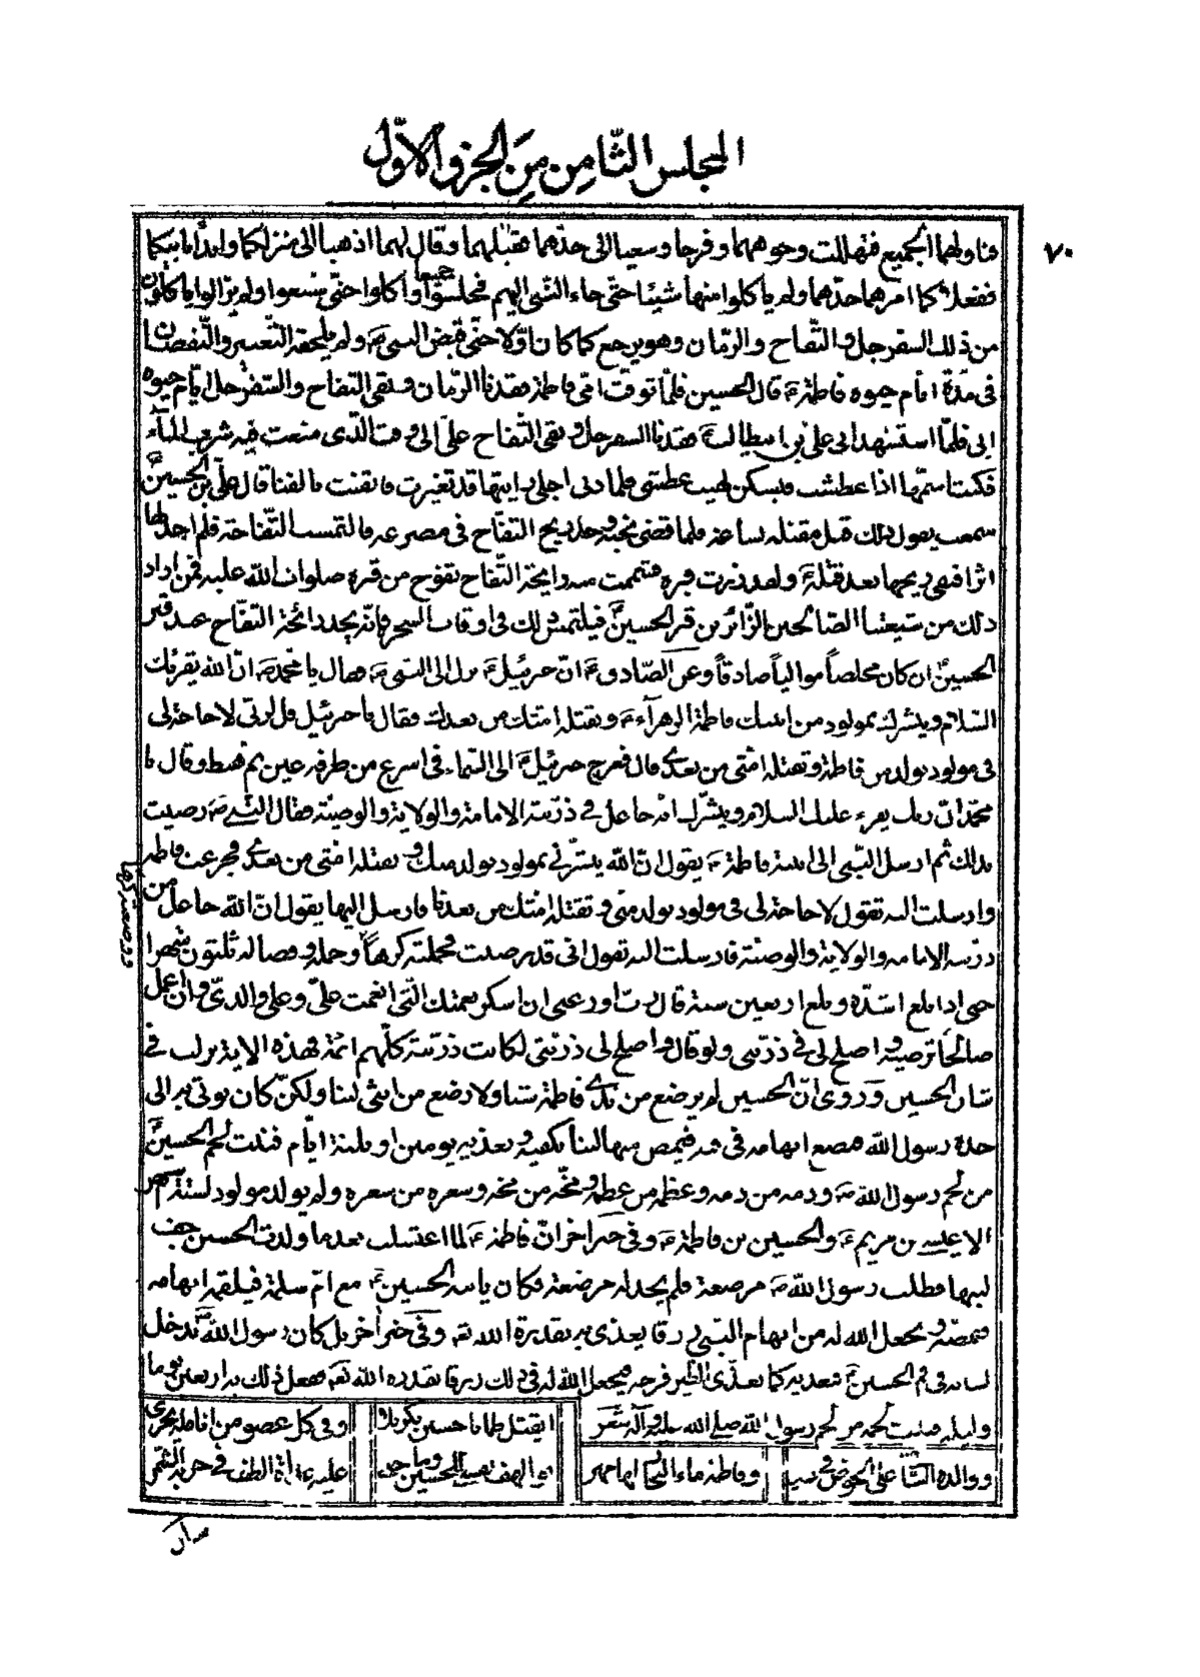 المجلس الثّامن من الجزو الاوّل
٧٠
فناولهما الجميع فتهللت وجوههما وفرحا وسعيا الى جدّهما فقبلهما وقال لهما اذهبا الى منزلكما وابدأ بابيكما
ففعلا كما امرهما جدّهما ولم ياكلوا منها شيئا حتّى جاء النّبى اليهم فجلسوا جميعا واكلوا حتّى شبعوا ولم يزالوا ياكلون
من ذلك السفرجل والتّفاح والرّمان وهو يرجع كما كان اوّلا حتّى قبض النبى ص ولم يلحقه التّغيير والنّقصان
فى مدّة ايّام حيوه فاطمة ع قال الحسين فلمّا توفّت امّى فاطمة فقدنا الرّمان وبقى التفاح والسّفرجل ايّام حيوه
ابى فلمّا استشهد ابى على بن ابيطالب ع فقدنا السفرجل وبقى التّفاح على الى وقت الّذى منعت فيه شرب المآء
فكنت اشمّها اذا عطشت فيسكن لهيب عطشى فلما دنى اجلى رايتها قد تغيرت فايقنت بالفنا قال علىّ بن الحسين ع
سمعته يقول ذلك قبل مقتله بساعة فلما قضى نحبه وجد ريح التفّاح فى مصرعه فالتمست التّفاحة فلم اجد لها
اثرا فبقى ريحها بعد قتله ع ولقد زرت قبره فشممت منه رايحة التّفاح تفوح من قبره صلوات الله عليه فمن اراد
ذلك من شيعتنا الصّالحين الزّائرين قبر الحسين ع فيلتمس ذلك فى اوقات السحر فانّه يجد رائحة التفّاح عند قبر
الحسين ع ان كان مخلصاً موالياً صادقاً وعن الصّادق ع انّ جبرئيل ع نزل الى النّبى ص فقال يا محمد ص انّ الله يقرئك
السّلام ويبشّرك بمولود من ابنتك فاطمة الزهرآء ع وتقتله امّتك من بعدك فقال يا جبرئيل قل لربّى لا حاجة لى
فى مولود يولد من فاطمة وتقتله امّتى من بعدى قال فعرج جبرئيل ع الى السّماء فى اسرع من طرفة عين ثم هبط وقال يا
محمّد انّ ربك يقرء عليك السلام ويبشّرك انّه جاعل فى ذرّيته الامامة والولاية والوصيّة فقال النّبى ص رضيت
بذلك ثم ارسل النّبى الى ابنته فاطمة ع يقول انّ الله يبشّرنى بمولود يولد منك وتقتله امّتى من بعدى فجزعت فاطمة
وارسلت اليه تقول لا حاجة لى فى مولود يولد منّى وتقتله امّتك من بعدنا فارسل اليها يقول انّ الله جاعل من
ذرّيته الامامه والولاية والوصيّة فارسلت اليه تقول انى قد رضيت فحملته كرهاً وحمله وفصاله ثلثون شهرا
حتى اذا بلغ اشدّه وبلغ اربعين سنة قال ربّ اوزعنى ان اشكر نعمتك الّتى انعمت علىّ وعلى والدىّ وان اعمل
صالحًا ترضيه واصلح لى فى ذرّيتى ولو قال واصلح لى ذرّيتى لكانت ذرّيته كلّهم ائمّة فهذه الاية نزلت فى
شان الحسين وَروى انّ الحسين لم يرضع من ثدى فاطمة شيئا ولا رضع من انثى لبنا ولكنّ كان يوتى به الى
جده رسول الله فيضع ابهامه فى فمه فيمص منها لبنا يكفيه ويغذيه يومين او ثلثة ايّام فنبت لحم الحسين ع
من لحم رسول الله ص ودمه من دمه وعظمه من عظمه ومخّه من مخه وشعره من شعره ولم يولد مولود لستّة اشهر
الا عيسى بن مريم ع والحسين بن فاطمة ع وفى خبر اخر انّ فاطمة ع لما اعتسلت بعد ما ولدت الحسين جف
لبنها فطلب رسول الله ص مرضعة فلم يجد له مرضعة فكان ياتيه الحسين ع مع امّ سلمة فيلقمه ابهامه
فيمصّه ويجعل الله له من ابهام النّبى رزقا يغذى به بقدرة الله تع وفى خبر اخر بل كان رسول الله ص يدخل
لسانه فى فم الحسين ع فيغذيه كما يغذّى الطّير فرخه فيجعل الله له فى ذلك رزقا بقدرة الله تع ففعل ذلك به اربعين يوما
وليلة فنبت لحمه من لحم رسول الله صلى الله عليه وآله شعر
ايقتل ظمانا حسين بكربلا وفى كل عضو من انامله بحرى
ووالده السّاقى على الحوض فى وفاطمة ماء
الهف نفسى للحسين وما جنى عليه غداة الطف فى حربه الشّمر